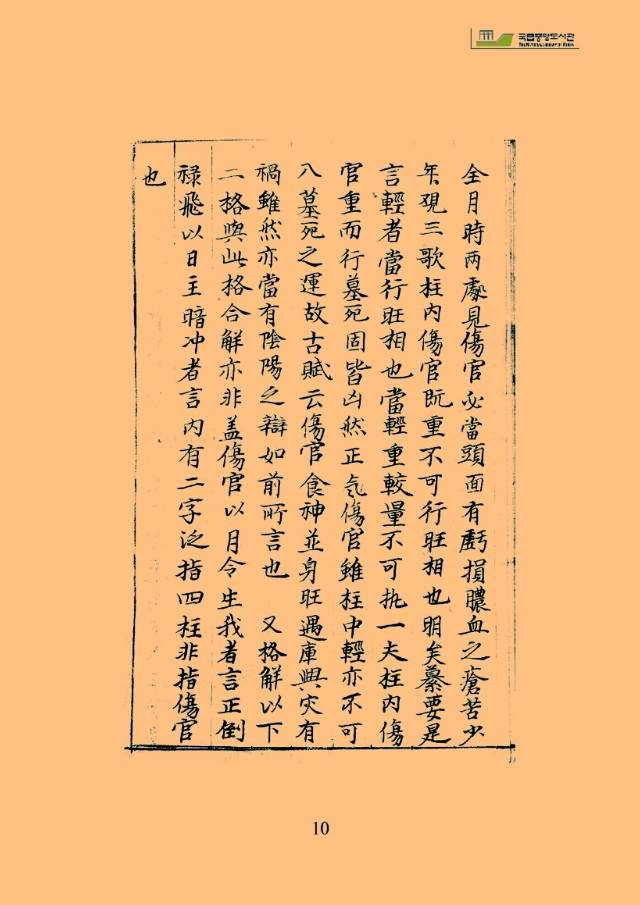 국립중앙도서관
THE NATIONAL LIBRARY OF KOREA
全月時两處見傷官必當頭面有虧損膿血之瘡苦少
年現三歌柱内傷官既重不可行旺相也明矣纂要是
言輕者當行旺相也當輕重較量不可执一夫柱内傷
官重而行墓死固皆凶然正気傷官雖柱中輕亦不可
八墓死之運故古賦云傷官食神並身旺遇庫興灾有
禍雖然亦當有陰陽之辯如前所言也 又格解以下
二格與此格合解亦非盖傷官以月令生我者言正倒
禄飛以日主暗冲者言内有二字泛指四柱非指傷官
也
10